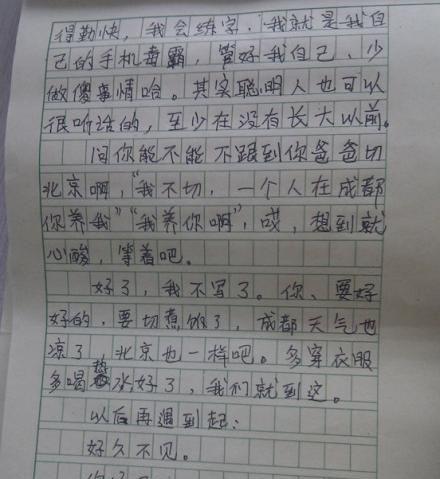 得勤快，我会练字，我就是我自
己的手机毒霸，管好我自己、少
做傻事情哈。其实聪明人也可以
很听话的，至少在没有长大以前。
问你能不能不跟到你爸爸切
北京啊，“我不切，一个人在成都
你养我”“我养你啊”，哎，想到就
心酸，等着吧。
好了，我不写了。你、要好
好的，要切煮饭了，成都天气也
凉了，北京也一样吧。多穿衣服
多喝热水好了，我们就到这。
以后再遇到起：
好久不见。